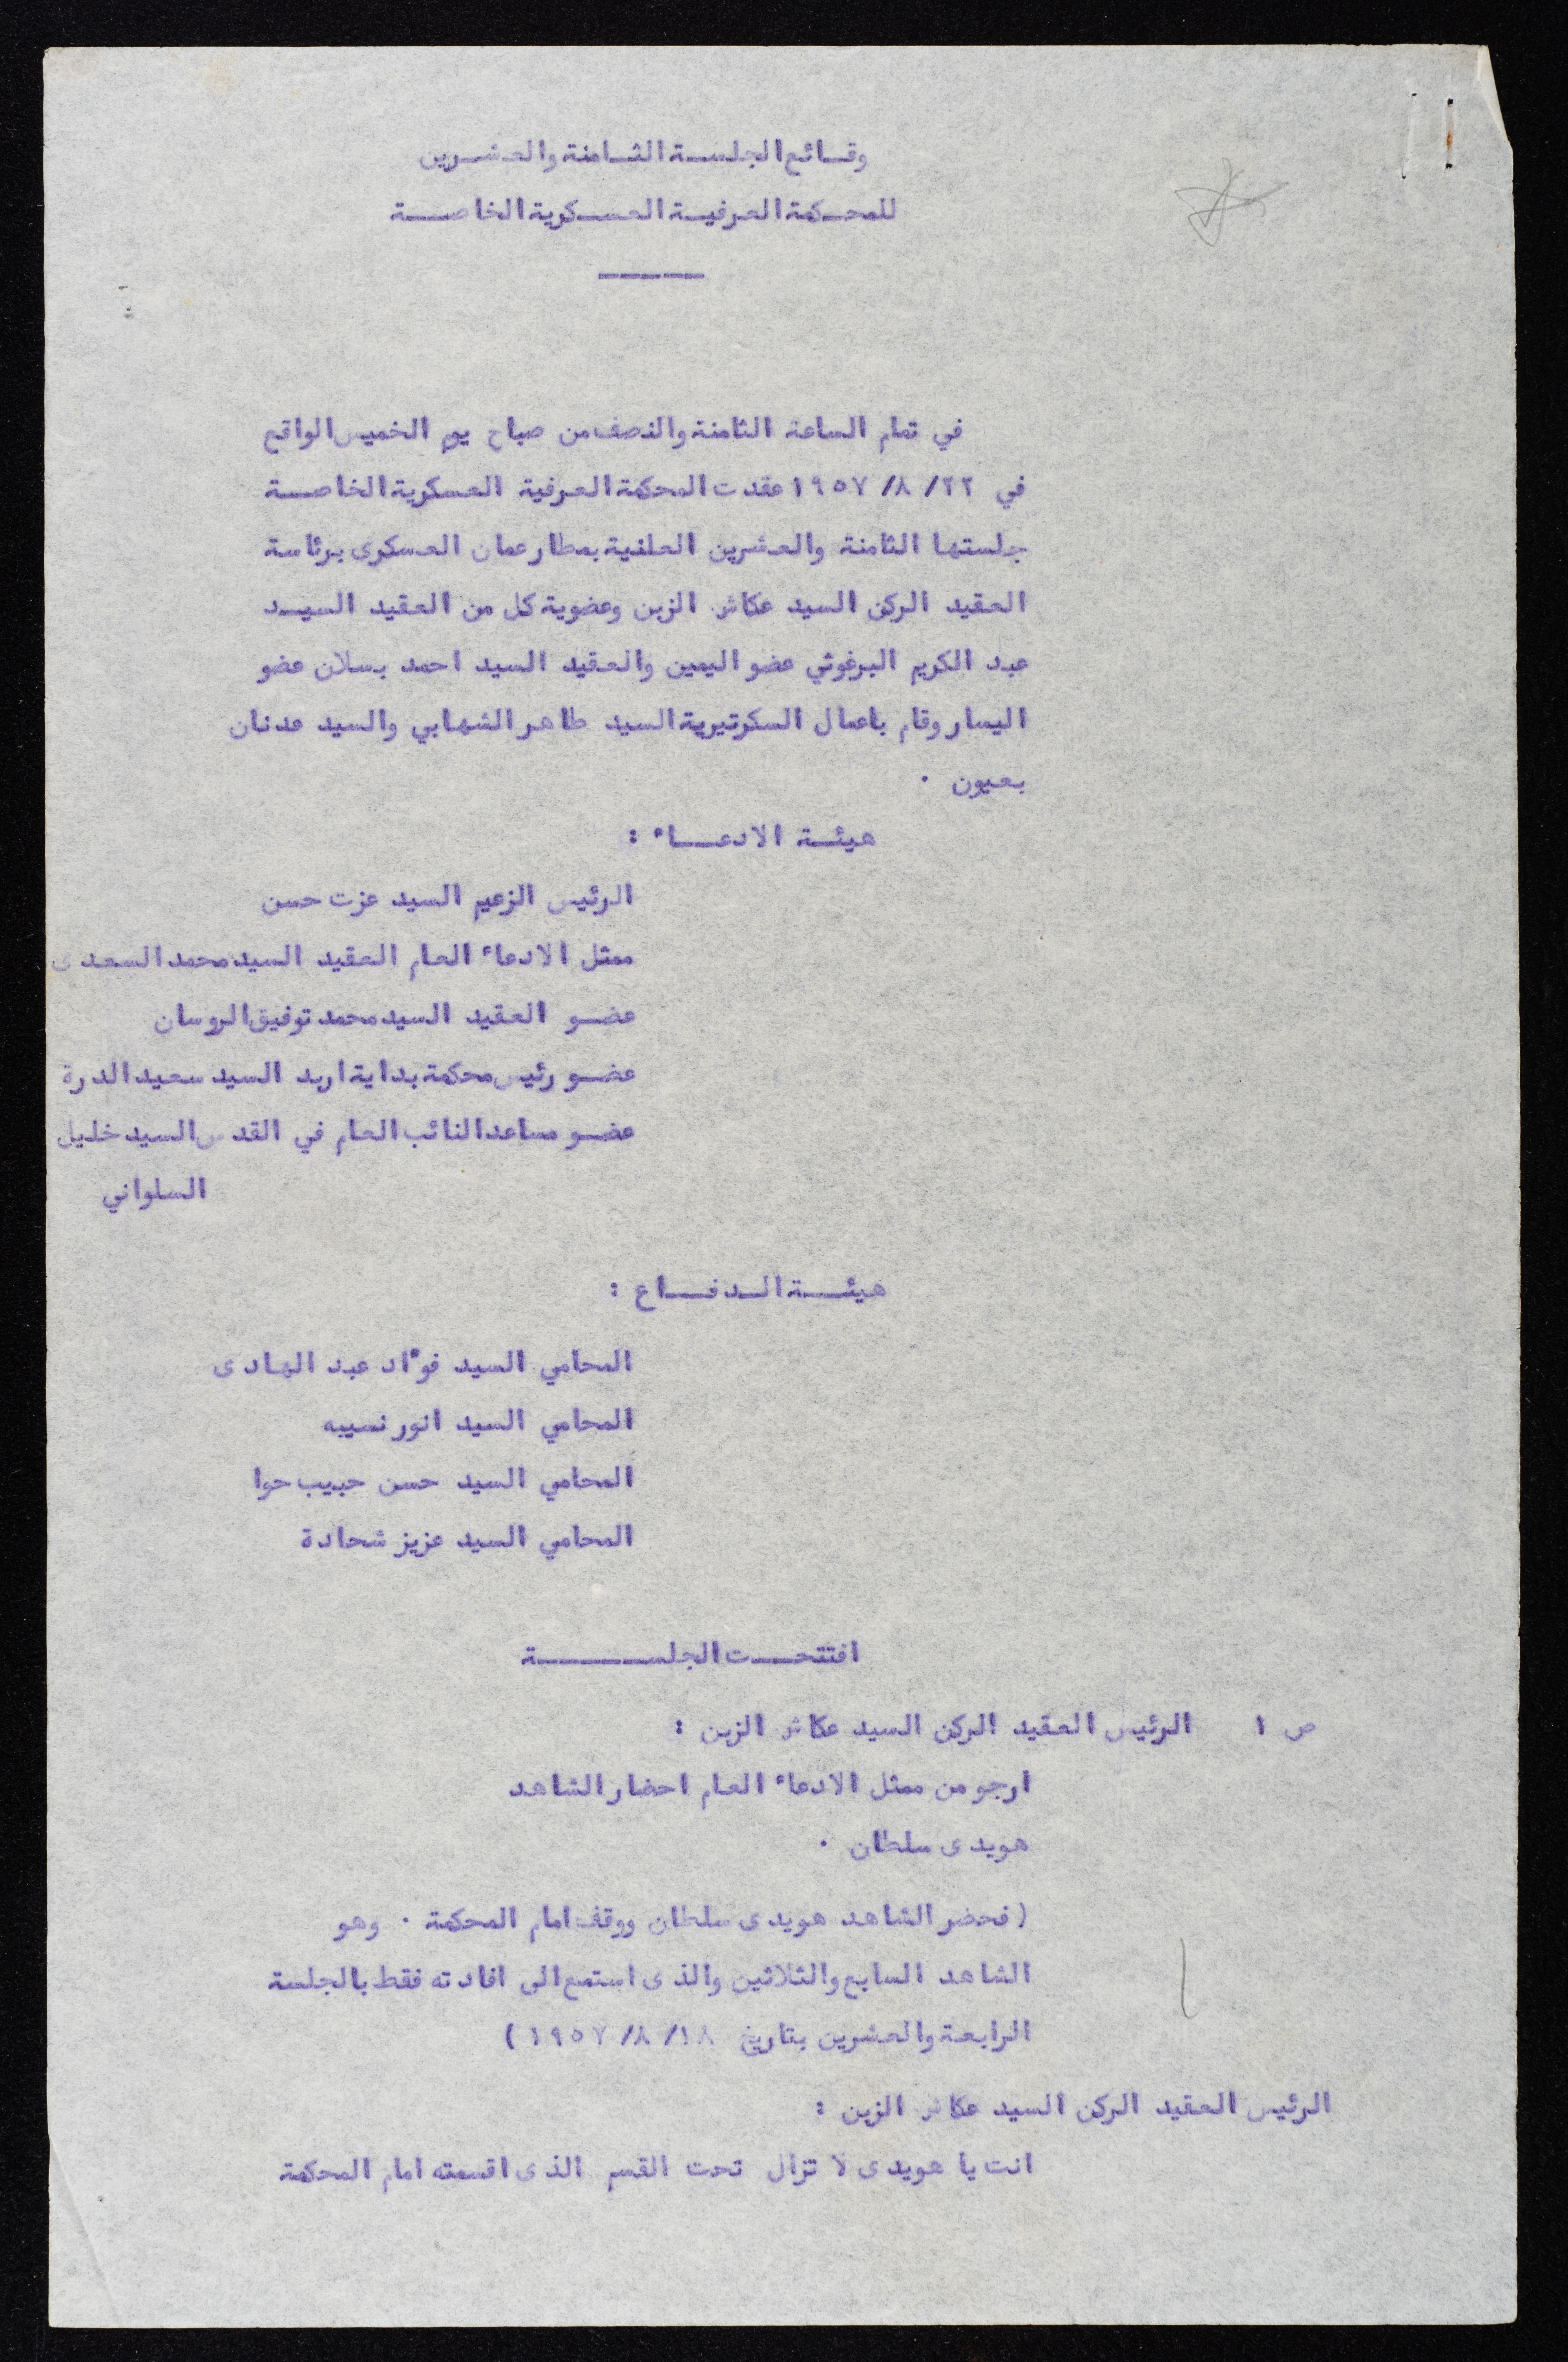 وقائع الجلسة الثامنة والعشرين
للمحكمة العرفية العسكرية الخاصة
في تمام الساعة الثامنة والنصف من صباح يوم الخميس الواقع
في ٢٢/ ٨/ ١٩٥٧ عقدت المحكمة العرفية العسكرية الخاصة
جلستها الثامنة والعشرين العلنية بمطار عمان العسكرى برئاسة
العقيد الركن السيد عكاش الزبن وعضوية كل من العقيد السيد
عبد الكريم البرغوثي عضو اليمين والعقيد السيد احمد بسلان عضو
اليسار وقام باعمال السكرتيرية السيد طاهر الشهابي والسيد عدنان
بعيون .
هيئة الادعاء :
الرئيس الزعيم السيد عزت حسن
ممثل الادعاء العام العقيد السيد محمد السعدى
عضو العقيد السيد محمد توفيق الروسان
عضو رئيس محكمة بداية اربد السيد سعيد الدرة
عضو مساعد النائب العام في القدس السيد خليل
السلواني
هيئة الدفاع :
المحامي السيد فوءاد عبد الهادى
المحامي السيد انور نسيبه
المحامي السيد حسن حبيب حوا
المحامي السيد عزيز شحادة
افتتحت الجلسة
ص ١ الرئيس العقيد الركن السيد عكاش الزبن :
ارجو من ممثل الادعاء العام احضار الشاهد
هويدى سلطان .
( فحضر الشاهد هويدى سلطان ووقف امام المحكمة . وهو
الشاهد السابع والثلاثين والذى استمع الى افادته فقط بالجلسة
الرابعة والعشرين بتاريخ ١٨/ ٨/ ١٩٥٧ )
الرئيس العقيد الركن السيد عكاش الزبن :
انت يا هويدى لا تزال تحت القسم الذى اقسمته امام المحكمة